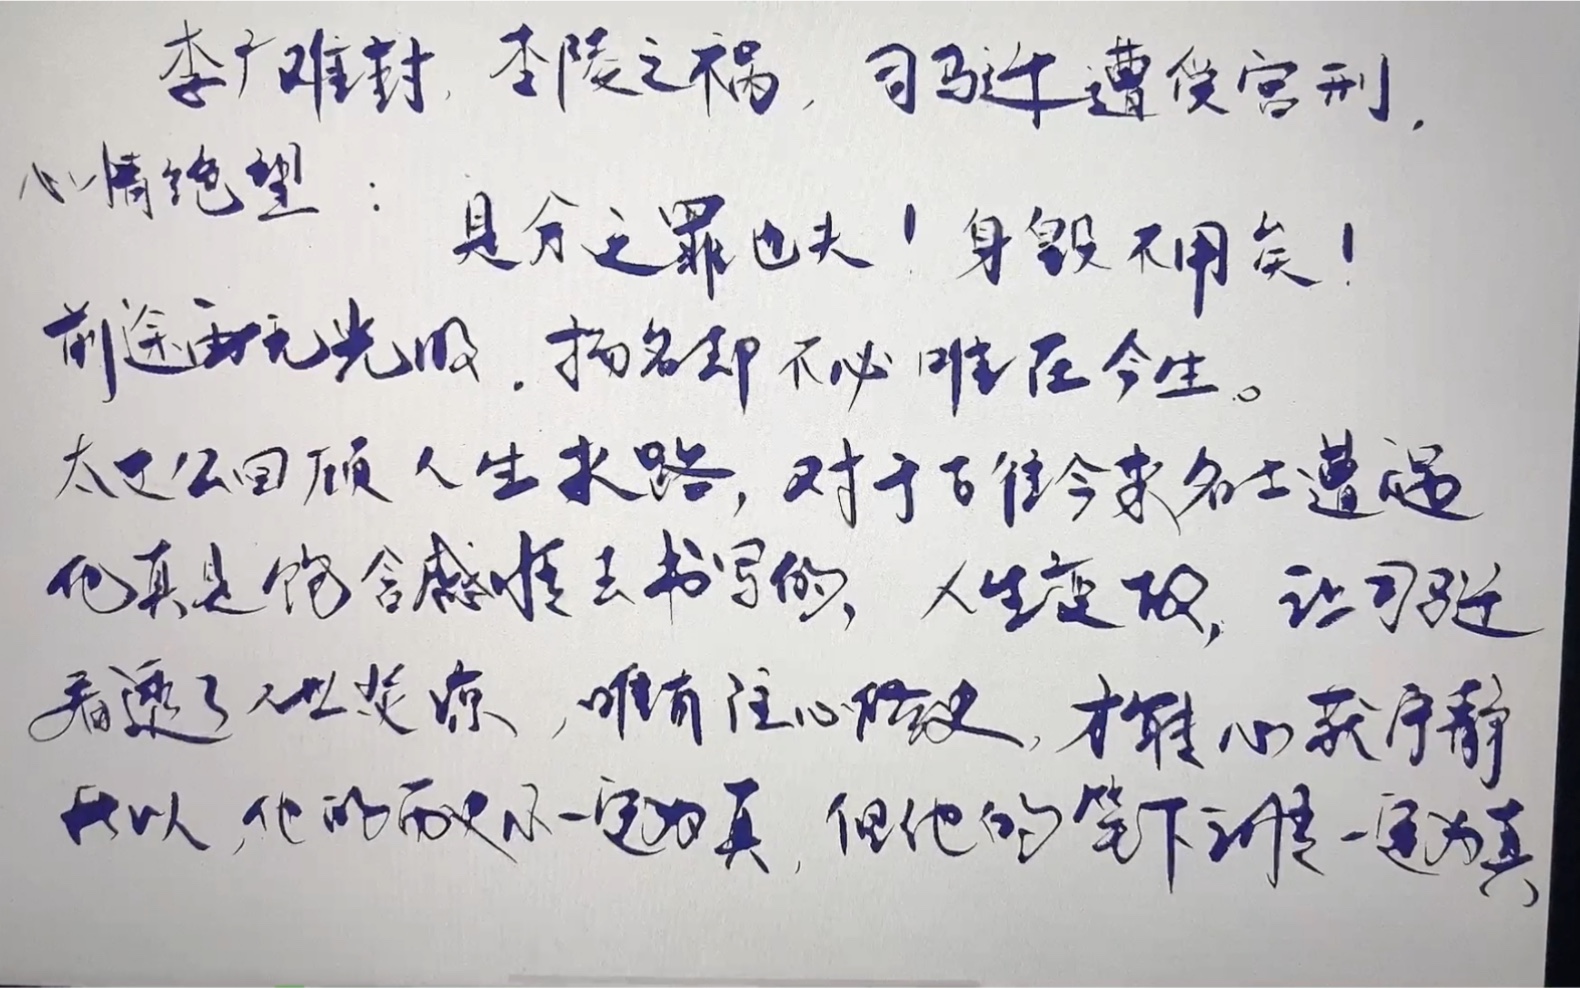 李广难封，李陵之祸，司马迁遭受宫刑，
心情绝望：
是余之罪也夫！身毁不用矣！
前途再无光明，扬名却不必唯在今生。
太史公回顾人生来路，对于古往今来名士遭遇
他真是饱含感情去书写的，人生变故，让司马迁
看透了人世炎凉，唯有注心修史，才能心获宁静
所以，他的历史不一定为真，但他的笔下之情一定为真